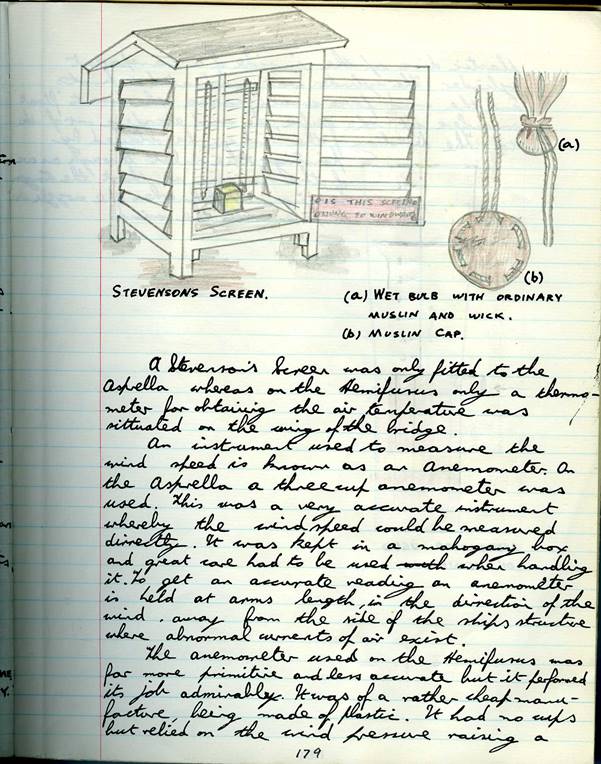 IS THIS SCREEN
STEVENSONS SCREEN.
(a)
(b)
(a) WET BULB WITH ORDINARY
MUSLIN AND WICK.
(b) MUSLIN CAP.
A Stevenson's Screen was only fitted to the
Asprella whereas on the Hemifusus only a thermo-
meter for obtaining the air temperature was
sittuated on the wing of the bridge.
An instrument used to measure the
wind speed is known as an Anemometer. On
the Asprella a three cup anemometer was
used. This was a very accurate instrument
whereby the wind speed could be measured
directly. It was kept in a mahogany box
and great care had to be used with when handling
it. To get an accurate reading an anemometer
is held at arms length, in the direction of the
wind, away from the side of the ships structure
where abnormal currents of air exist.
The anemometer used on the Hemifusus was
far more primitive and less accurate but it performed
its job admirably. It was of a rather cheap manu-
facture, being made of plastic. It had no cups
but relied on the wind pressure raising a
179